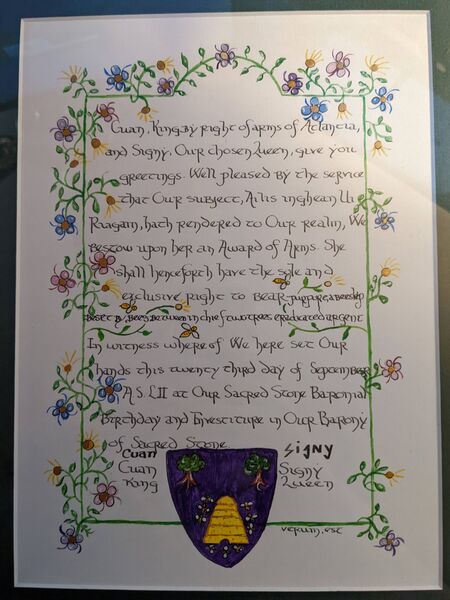 Cuan, King by right of arms of Atlantia,
and Signy, Our chosen Queen, give you
greetings. Well pleased by the service
that Our subject, Ailis inghean Ui
Riagain, hath rendered to Our realm, We
bestow upon her an Award of Arms. She
shall henceforth have the sole and
exclusive right to bear purpure, a beeskep
beset by bees, between in chief two trees eradicated argent
In witness whereof We here set Our
hands this twenty third day of September
A.S. LII at Our Sacred Stone Baronial
Birthday and Investiture in Our Barony
of Sacred Stone.
Cuan Signy
Cuan Signy
King Queen
verum, est